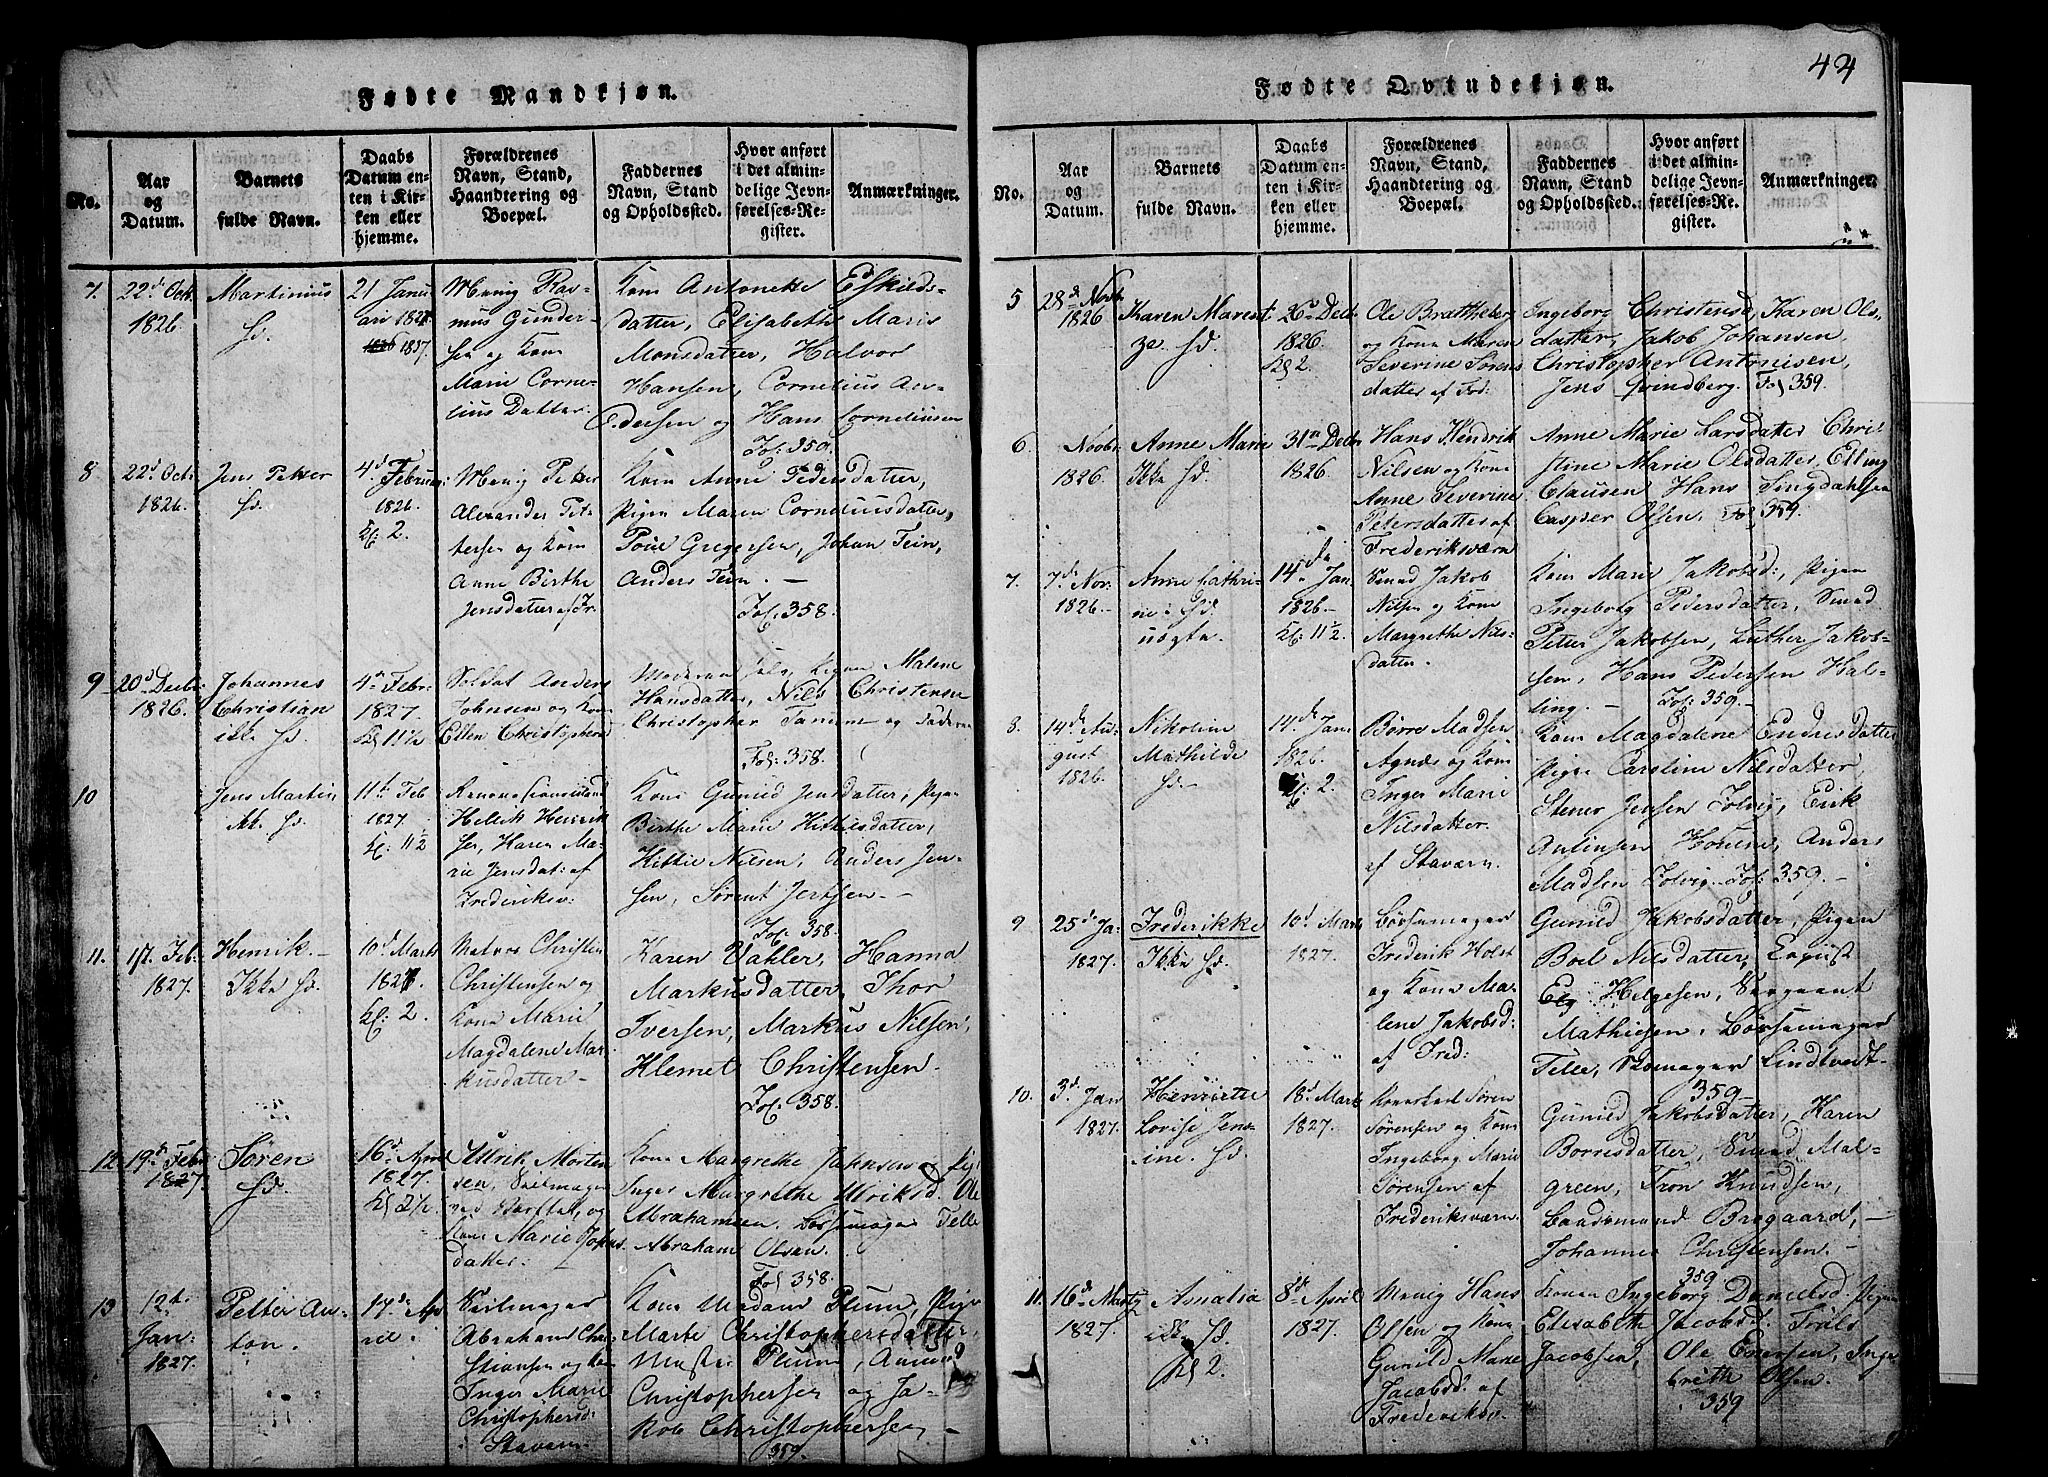 44
Fødte Mandkjøn.
No.
Aar
og
Datum.
Barnets
fulde Navn.
Daabs
Datum en-
ten i Kir-
ken eller
hjemme.
Forældrenes
Navn, Stand,
Haandtering og
Boepæl.
Faddernes
Navn, Stand
og Opholdssted.
Hvor anført
i det almin-
delige Jevn-
førelses-Re-
gister.
Anmærkninger.
7.
22d Oct.
1826.
Martinius
hd.
21 Janu
ari 1827
Menig Ras-
mus Gunder-
sen og Kone
Marie Corne-
lius Datter.
Kone Antonette Eskilds-
datter, Elisabeth Marie
Monsdatter, Halvor
Hansen, Cornelius An-
dersen og Hans Corneliusen
Fol: 350.
8
22d Oct:
1826.
Jens Petter
hd.
4d Februar:
1826.
Kl. 2.
Menig Peter
Alexander Pet-
tersen og Kone
Anne Birthe
Jensdatter af Fr.
Kone Anne Pedersdatter,
Pigen Maren Corneliusdatter,
Poul Gregersen, Johan Fein,
Anders Fein. —
Fol. 358.
9
20d Decbr:
1826.
Johannes
Christian
ikke hd.
4d Febr:
1827.
Kl 11½
Soldat Anders
Johnsen og Kone
Ellen Christophersd
Moderen selv, Pigen Malene
Hansdatter, Nils Christensen
Christopher Tanum og Faderen
Fol: 358.
10
Jens Martin
ikk. hd.
11te Feb
1827.
Kl: 11½
Hellik Henrik
sen, Karen Ma-
rie Jensdat: af
Frederiksv:
Kone Gunild Jensdatter, Pigen
Birthe Marie Kittilsdatter,
Kittil Nilsen, Anders Jen-
sen, Sørent Jertsen —
Fol: 358.
11.
17. Feb.
1827.
Henrik.
Ikke hd.
10d Marts
1827.
Kl: 2.
Matros Christen
Christensen og
Kone Marie
Magdalene Mar-
kusdatter —
Karen Vahler, Hanna
Markusdatter, Thor
Iversen, Markus Nilsen,
Klemet Christensen.
Fol. 358.
12
19de Febr
1827.
Søren
hd.
16d April
1827.
Kl 2½
Ulrik Morten
sen, Seilmager
ved Verftet, og
Kone Marie Johns
datter.
Kone Margrethe Johnsen, Pige
Inger Margrethe Ulriksd. Ole
Abrahamsen, Børsemager Telle
Abraham Olsen.
Fol 358.
13
12te
Jan:
1827.
Petter An-
ton.
17de Ap
ril.
Seilmager
Abraham Chri-
stiansen og Kone
Inger Marie
Christophersd:
i Stavern.
Kone Madam Plum, Pige
Marte Christophersdatter,
Plum,
Christophersen og Ja-
kob Christophersen, —
359.
Fødte Qvindekjøn.
No.
Aar
og
Datum.
Barnets
fulde Navn.
Daabs
Datum en-
ten i Kir-
ken eller
hjemme.
Forældrenes
Navn, Stand,
Haandtering og
Boepæl.
Faddernes
Navn, Stand
og Opholdssted.
Hvor anført
i det almin-
delige Jevn-
førelses-Re-
gister.
Anmærkninger.
5
28d Novbr
1826
Karen Marent-
ze hd.
26d Decbr
1826.
Kl 2.
Ole Brattheber
og Kone Maren
Severine Sørens
datter af Frd:
Ingeborg Christensd, Karen Ols-
datter, Jakob Johansen,
Christopher Antonisen,
Jens Svindberg. Fol 359.
6
Novbr
1826.
Anne Marie
Ikke hd.
31te Decbr
1826.
Hans Hendrik
Nilsen og Kone
Anne Severine
Petersdatter af
Frederiksværn
Anne Marie Larsdatter Chri-
stine Marie Olsdatter, Elling
Clausen Hans Singdahlsen
Casper Olsen. Fol 359.
7.
7de Nov.
1826.—
Anne Cathri-
ne. hd.
uægte.
14de Jan
1826.—
Kl: 11½.
Smed Jakob
Nilsen og Kone
Margrethe Nils-
datter.
Kone Marie Jakobsd:, Pigen
Ingeborg Pedersdatter, Smed
Petter Jakobsen, Luther Jakob-
sen, Hans Pedersen Hal-
ling. — Fol: 359.—
8.
14de Au-
gust
1826.
Nikoline
Mathilde
hd.—
14de Jan
1826.
Kl: 2.
Børre Madsen
Agnæs og Kone
Inger Marie
Nilsdatter.
af Staværn.
Kone Magdalene Endresdatter
Pigen Caroline Nilsdatter,
Stener Jensen Tolvig, Eirik
Antinsen Hovene, Anders
Madsen Tolvig. Fol: 359.—
9
25de Ja-
1827.
Frederikke
Ikke hd.
10d Marts
1827.
Børsemager
Frederik Holst
og Kone Ma-
lene Jakobsd:
af Fred:
Gunild Jakobsdatter, Pigen
Boel Nilsdatter, August
Helgesen, Sergeant
Mathiesen, Børsemager
Telle, Skomager Lindtvedt-
359—
10.
3d Jan
1827.
Henriette
Lovise Jen-
ine. hd.
18d Marts
1827.
Søren
Sørensen og Kone
Ingeborg Marie
Sørensen af
Frederiksværn.
Gunild Jakobsdatter, Karen
Borrisdatter, Smed Mal-
green, Tron Knudsen,
Baadsmand Bregaard, —
Johannes Christensen. —
359
11.
16d Marty
1827.
Amalia
ikke hd.
Kl 2.
8de April
1827.
Menig Hans
Olsen og Kone
Gunild Marie
Jacobsd. af
Frederiksv.
Konen Ingeborg Danielsd. Pigen
Elisabeth Jacobsd. Troels
Jacobsen, Ole Enersen, Inge-
breth Olsen.
359